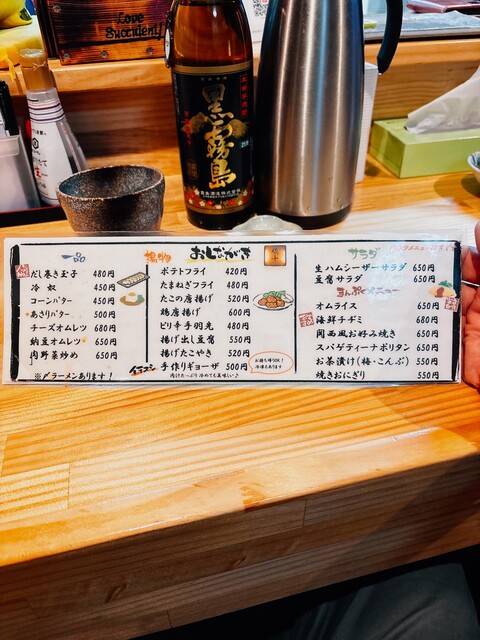 Love
Succulent
黒霧島
おしながき
一品
だし巻き玉子 480円
冷奴 450円
コーンバター 450円
あさりバター 500円
チーズオムレツ 680円
納豆オムレツ 650円
肉野菜炒め 650円
※〆ラーメンあります！
揚物
ポテトフライ 420円
たまねぎフライ 480円
たこの唐揚げ 520円
鶏唐揚げ 500円
ピリ辛手羽先 480円
揚げ出し豆腐 550円
揚げたこやき 520円
イチオシ 手作りギョーザ 500円
肉汁たっぷり 冷めても美味しい♪
お持ち帰りOK!
冷凍もあります
サラダ
生ハムシーザーサラダ 650円
豆腐サラダ 550円
まんぷくメニュー
オムライス 650円
海鮮チヂミ 680円
関西風お好み焼き 650円
スパゲティーナポリタン 650円
お茶漬け(梅・こんぶ) 550円
焼きおにぎり 550円